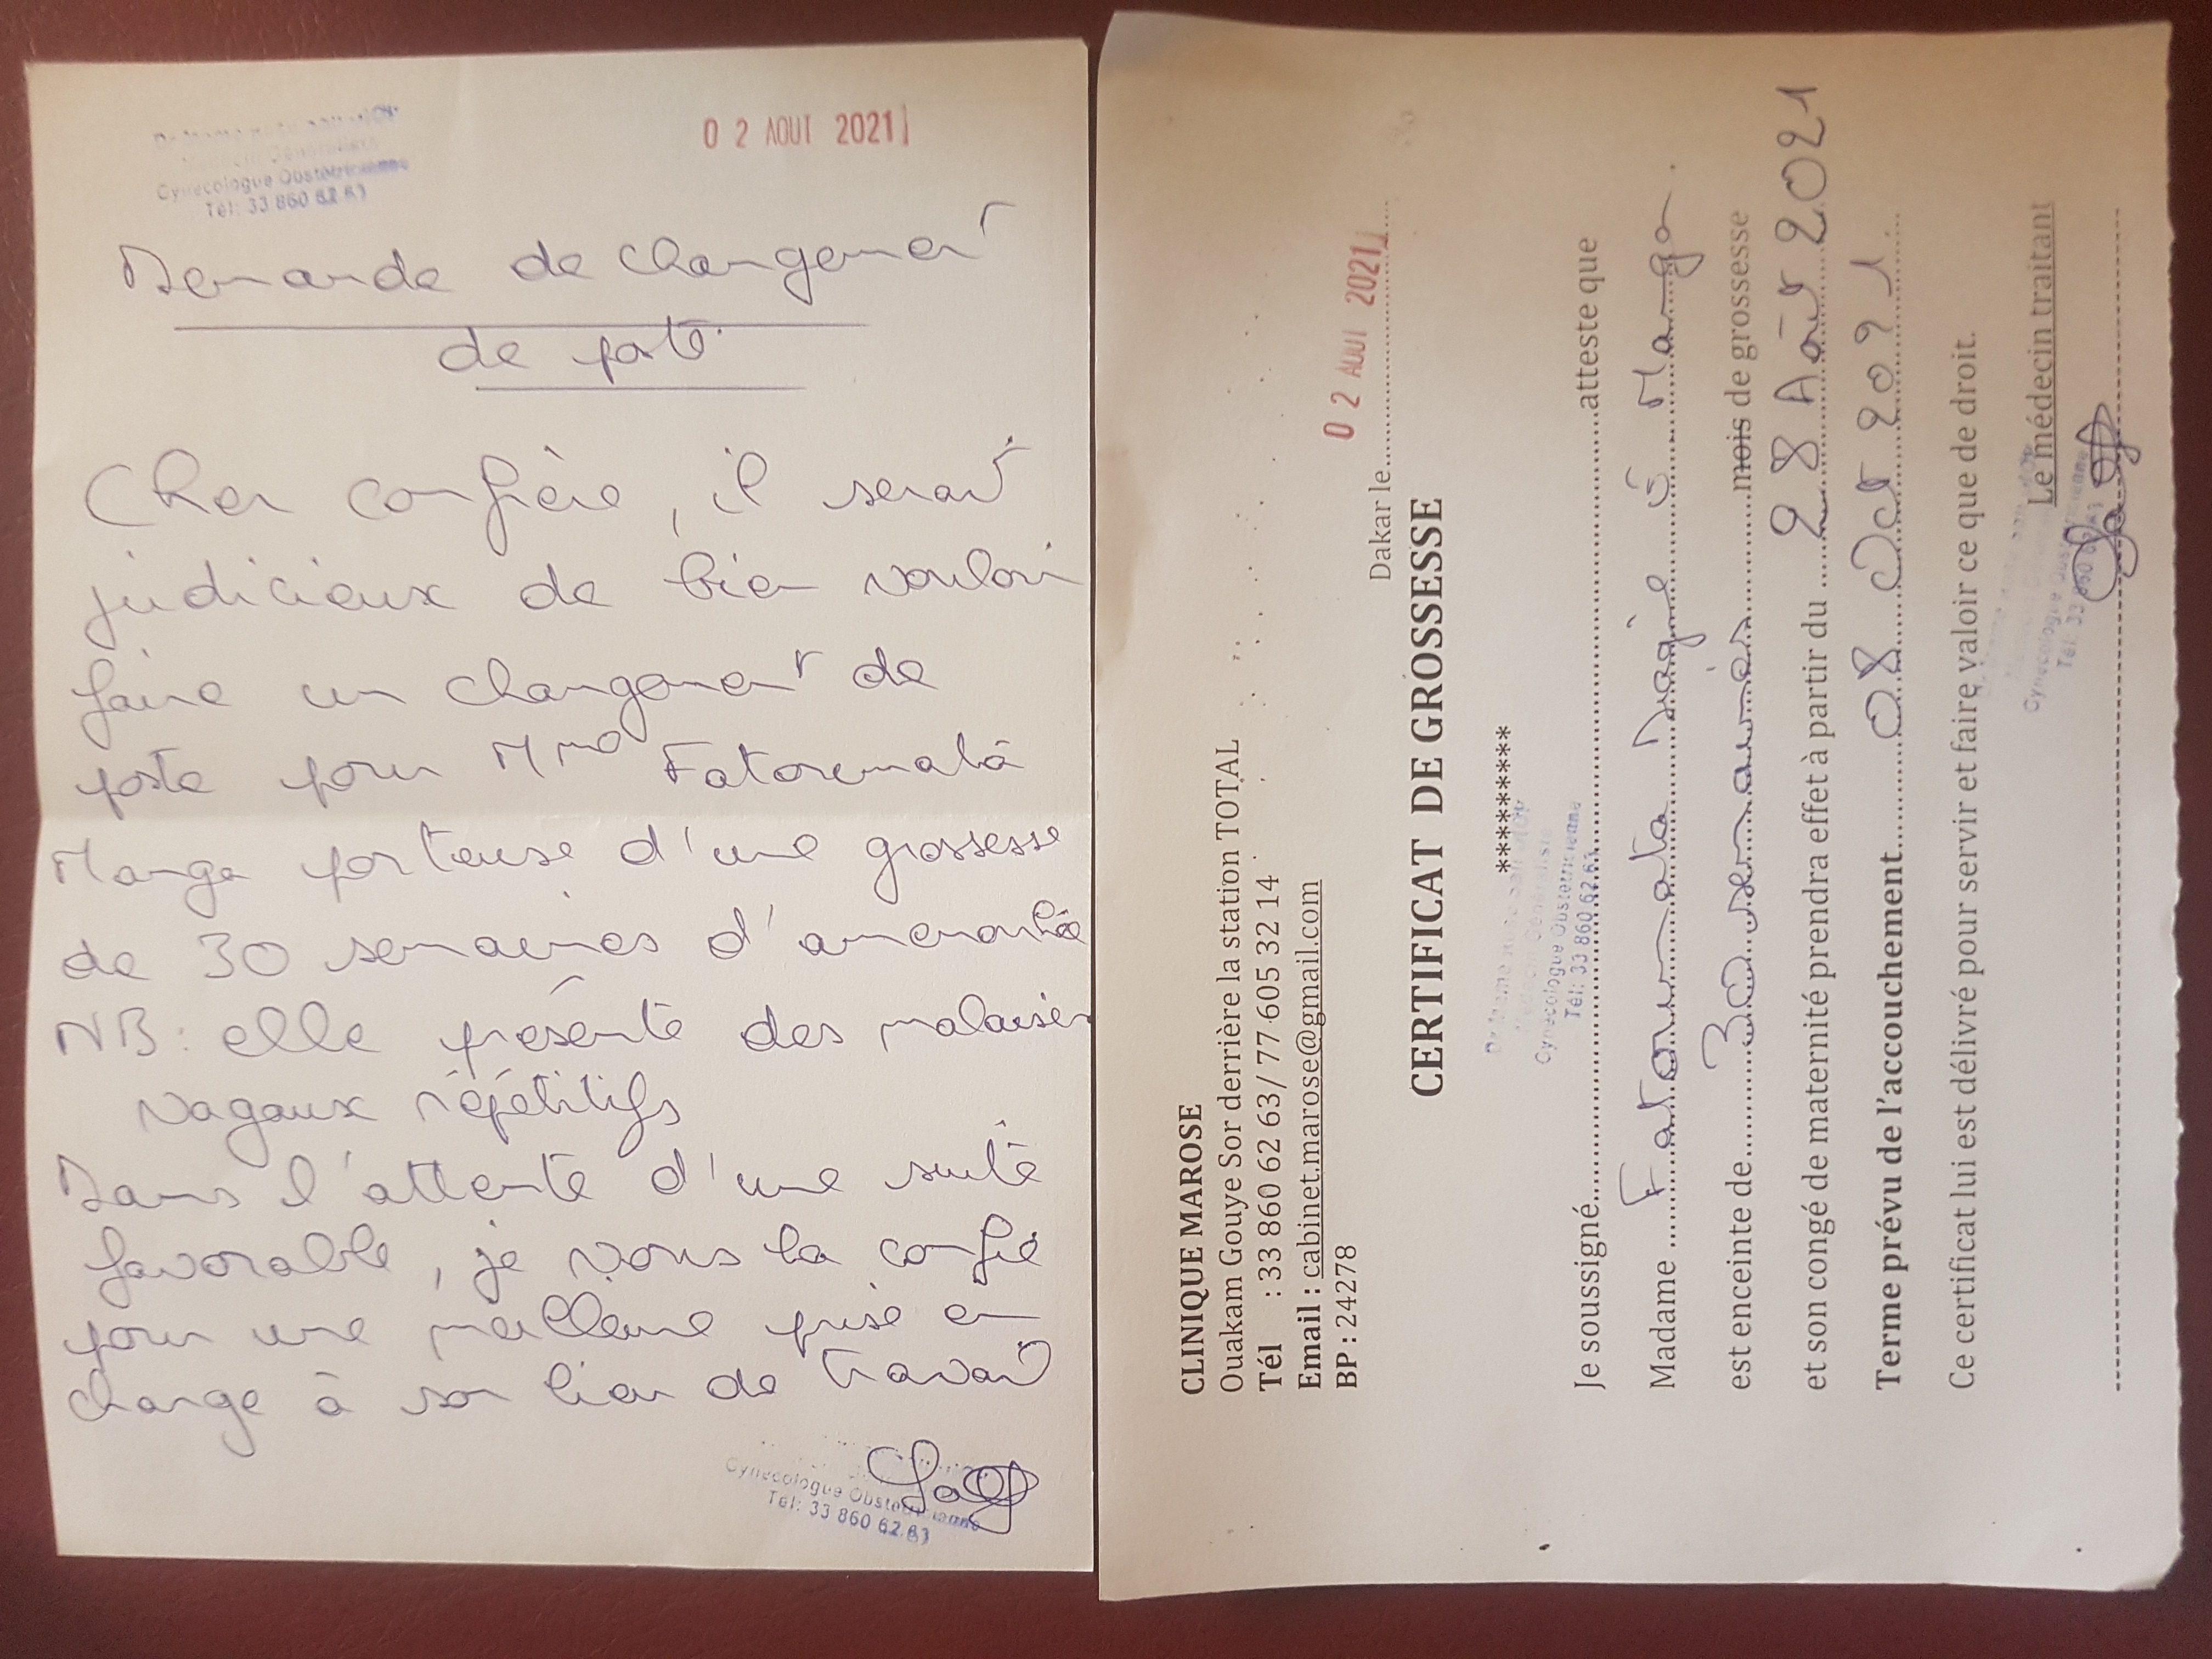 0 2 AOUT 2021
Gynecologue Obstetricienne
Tél: 33 860 62 63
Demande de changement
de poste
Cher confrère, il serait
judicieux de bien vouloir
faire un changement de
poste pour Mme Fatoumata
Manga porteuse d'une grossesse
de 30 semaines d'amenorrhée
NB: elle présente des malaises
vagaux répétitifs
Dans l'attente d'une suite
favorable, je vous la confie
pour une meilleure prise en
charge à son lieu de travail
Gynecologue Obstetricienne
Tél: 33 860 62 63
CLINIQUE MAROSE
Ouakam Gouye Sor derrière la station TOTAL
Tél : 33 860 62 63/ 77 605 32 14
Email : cabinet.marose@gmail.com
BP : 24278
Dakar le 0 2 AOUT 2021
CERTIFICAT DE GROSSESSE
*********
Gynecologue Obstetricienne
Tél: 33 860 62 63
Je soussigné atteste que
Madame Fatoumata Manga
est enceinte de 30 semaines mois de grossesse
et son congé de maternité prendra effet à partir du 28 Août 2021
Terme prévu de l'accouchement 08 Oct 2021
Ce certificat lui est délivré pour servir et faire valoir ce que de droit.
Le médecin traitant
Gynecologue Obstetricienne
Tél: 33 860 62 63